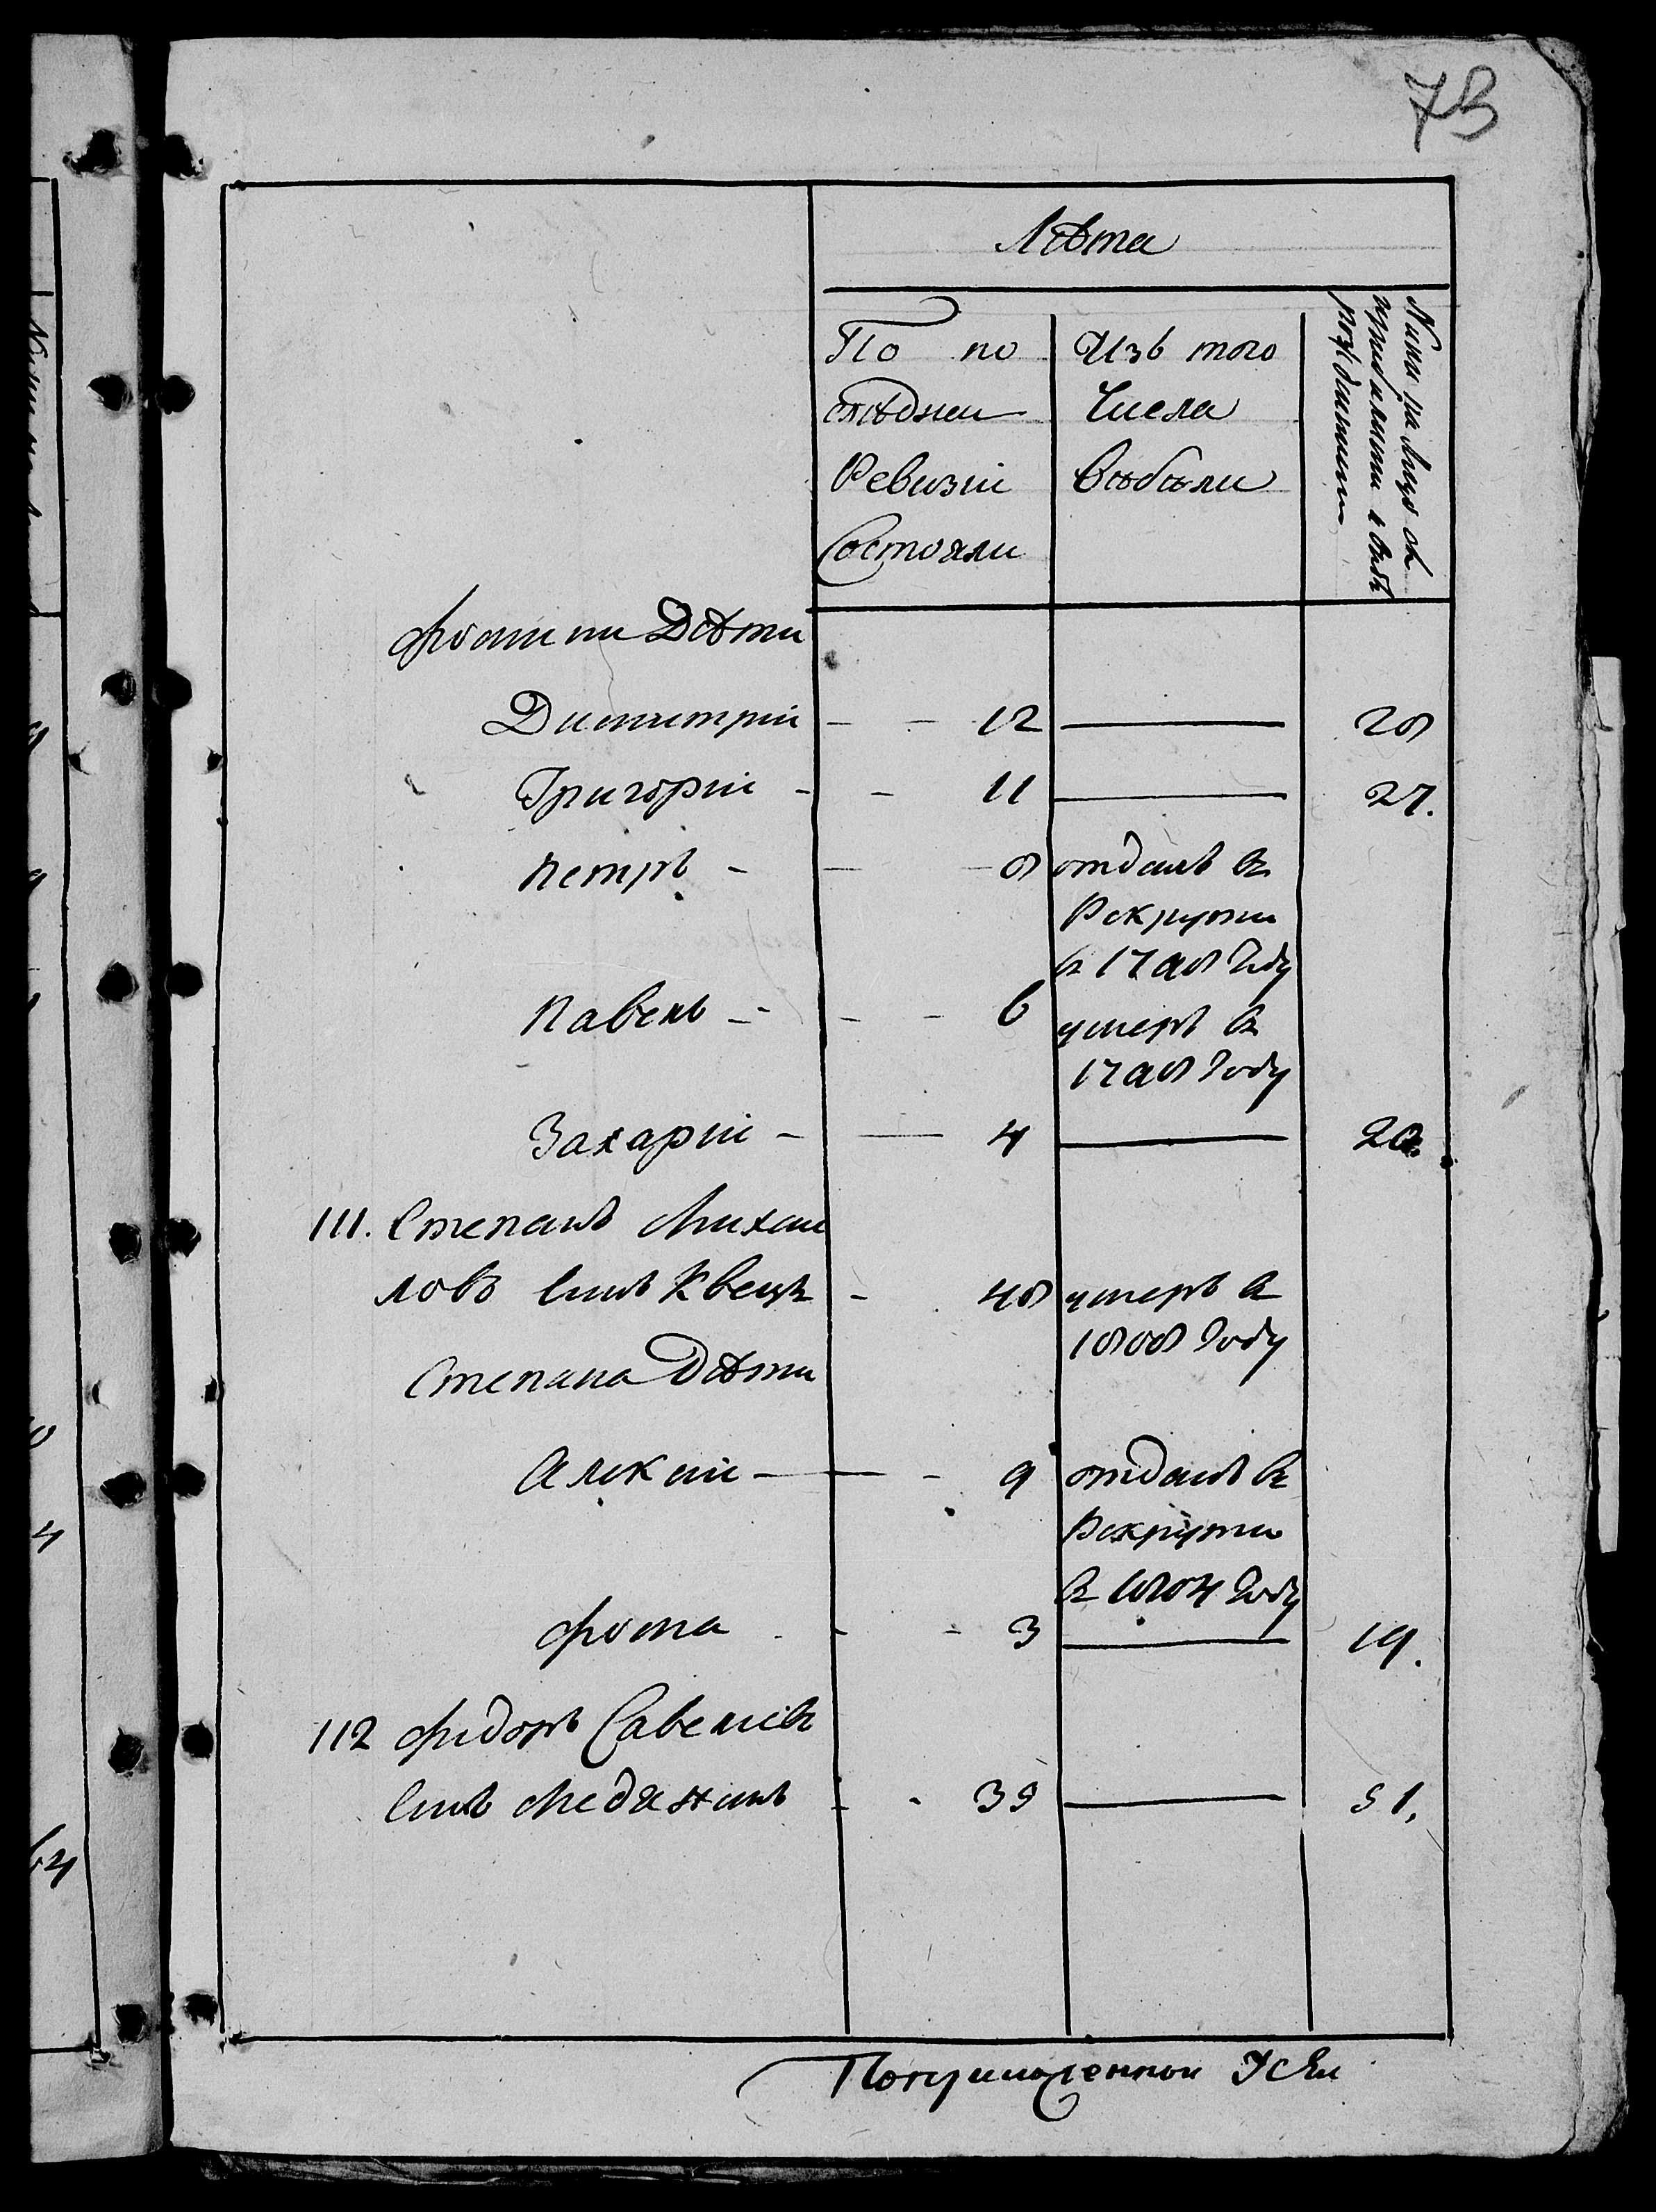 73
Лѣта
По по
слѣднеи
Ревизіи
Состояли
Изъ того
Числа
выбыли
Ныне на лицо съ
прибылыми и вновь
рожденными
Фомины Дѣти
Димитрій - - 12 — 28
Григорій - - 11 — 27.
Петръ - — 8 отданъ въ
Рекруты
в 1798 году
Павелъ - - - 6 умеръ въ
1798 году
Захарій - — 4 — 20.
111. Степанъ Михаи
ловъ сынъ Квецъ - 48 умеръ в
1808 году
Степана Дѣти
Алексѣи — - 9 отданъ въ
Рекруты
в 1804 году
Фома - - 3 — 19.
112 Федоръ Савеліевъ
сынъ Медяникъ - - 35 — 51.